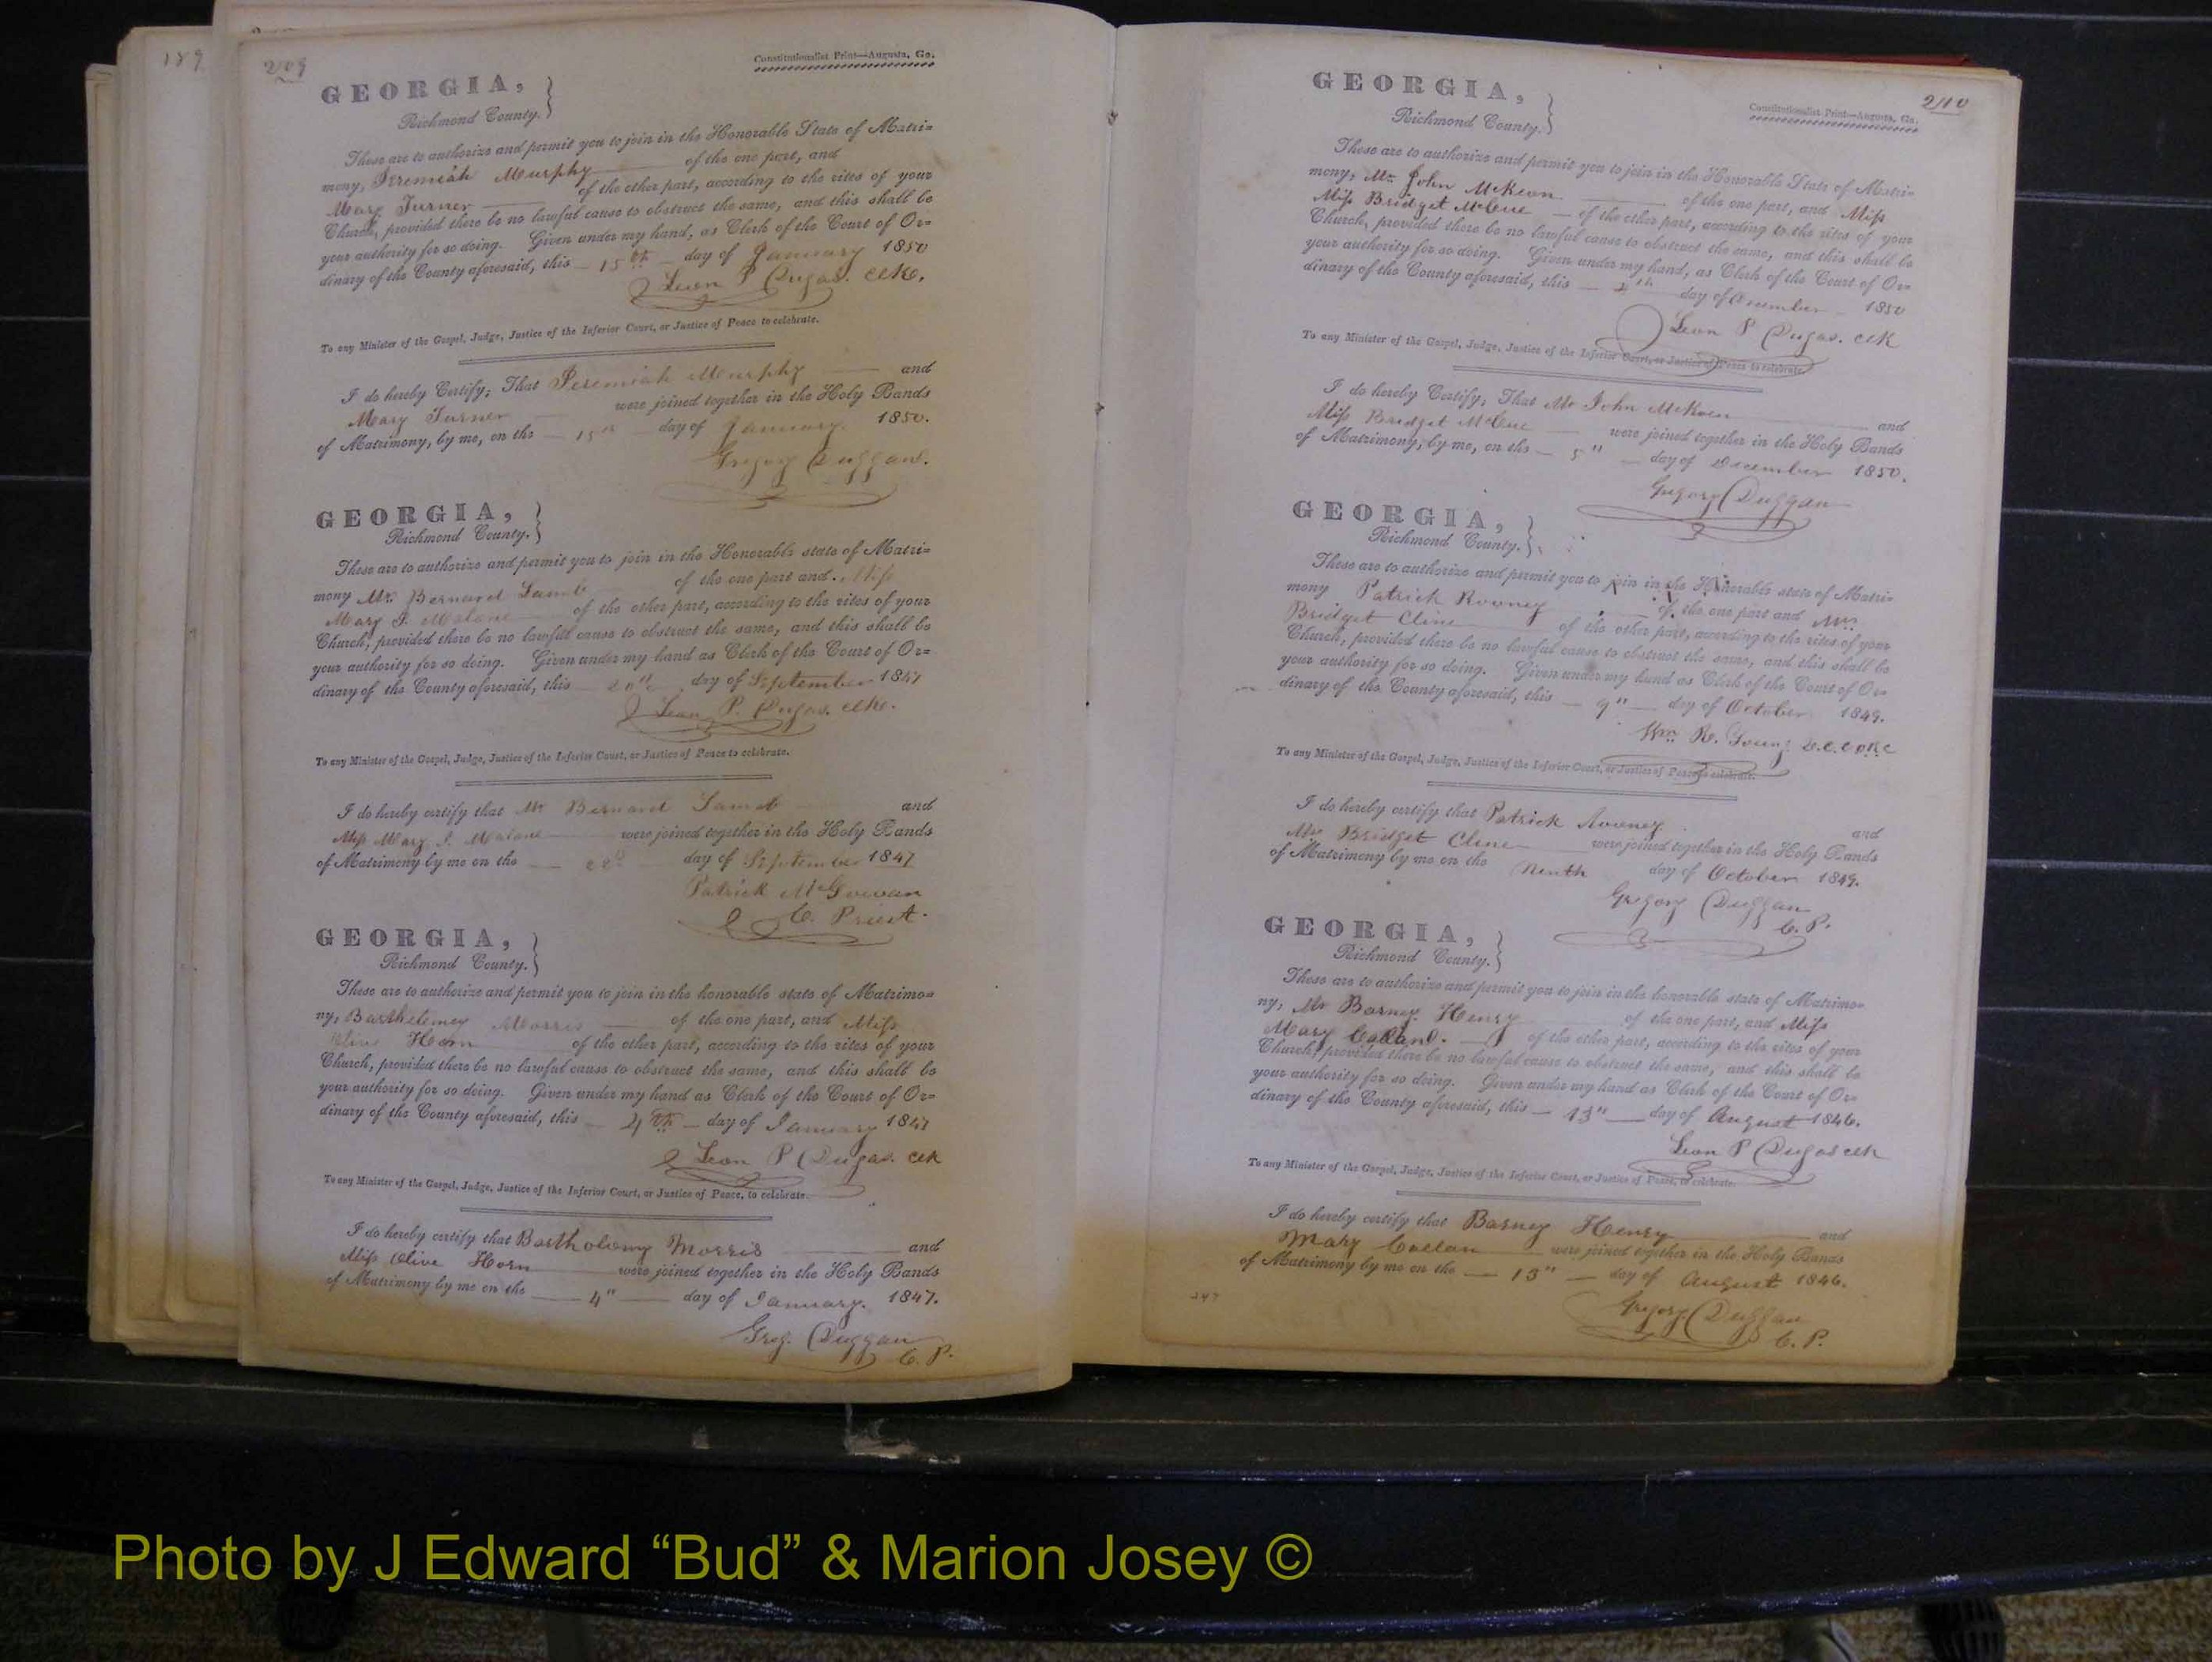 189
209
Constitutionalist Print—Augusta, Ga.
GEORGIA,
Richmond County.
These are to authorize and permit you to join in the Honorable State of Matri=
mony, Jeremiah Murphy of the one part, and
Mary Turner of the other part, according to the rites of your
Church, provided there be no lawful cause to obstruct the same, and this shall be
your authority for so doing. Given under my hand, as Clerk of the Court of Or=
dinary of the County aforesaid, this 15th day of January 1850
Leon P Dugas. Clk.
To any Minister of the Gospel, Judge, Justice of the Inferior Court, or Justice of Peace to celebrate.
I do hereby Certify; That Jeremiah Murphy and
Mary Turner were joined together in the Holy Bands
of Matrimony, by me, on the 15th day of January. 1850.
Gregory Duggan.
GEORGIA,
Richmond County.
These are to authorize and permit you to join in the Honorable state of Matri=
mony Mr. Bernard Lamb of the one part and. Miss
Mary I. Malone of the other part, according to the rites of your
Church, provided there be no lawful cause to obstruct the same, and this shall be
your authority for so doing. Given under my hand as Clerk of the Court of Or=
dinary of the County aforesaid, this day of September 1847
Leon P. Dugas. clk.
To any Minister of the Gospel, Judge, Justice of the Inferior Court, or Justice of Peace to celebrate.
I do hereby certify that Mr Bernard Lamb and
Miss Mary I. Malone were joined together in the Holy Bands
of Matrimony by me on the day of September 1847
Patrick McGowan
C. Priest.
GEORGIA,
Richmond County.
These are to authorize and permit you to join in the honorable state of Matrimo=
ny, Bartholemey Morris of the one part, and Miss
Olive Horn of the other part, according to the rites of your
Church, provided there be no lawful cause to obstruct the same, and this shall be
your authority for so doing. Given under my hand as Clerk of the Court of Or=
dinary of the County aforesaid, this 4th day of January 1847
Leon P Dugas. Clk
To any Minister of the Gospel, Judge, Justice of the Inferior Court, or Justice of Peace, to celebrate.
I do hereby certify that Bartholomy Morris and
Miss Olive Horn were joined together in the Holy Bands
of Matrimony by me on the 4" day of January. 1847.
Greg. Duggan
C. P.
210
Constitutionalist Print—Augusta, Ga.
GEORGIA,
Richmond County.
These are to authorize and permit you to join in the Honorable State of Matri=
mony, Mr. John McKeon of the one part, and Miss
Miss Bridget McCene of the other part, according to the rites of your
Church, provided there be no lawful cause to obstruct the same, and this shall be
your authority for so doing. Given under my hand, as Clerk of the Court of Or=
dinary of the County aforesaid, this day of December 1850
Leon P Dugas. Clk
To any Minister of the Gospel, Judge, Justice of the Inferior Court, or Justice of Peace to celebrate.
I do hereby Certify; That Mr John McKoen and
Miss Bridget McCene were joined together in the Holy Bands
of Matrimony, by me, on the 5" day of December 1850.
Gregory Duggan
GEORGIA,
Richmond County.
These are to authorize and permit you to join in the Honorable state of Matri=
mony Patrick Rooney of the one part and Mrs
Bridget Cline of the other part, according to the rites of your
Church, provided there be no lawful cause to obstruct the same, and this shall be
your authority for so doing. Given under my hand as Clerk of the Court of Or=
dinary of the County aforesaid, this 9" day of October 1849.
Wm R. Young D.C.C.O.R.C
To any Minister of the Gospel, Judge, Justice of the Inferior Court, or Justice of Peace to celebrate.
I do hereby certify that Patrick Rooney and
Mrs Bridget Cline were joined together in the Holy Bands
of Matrimony by me on the Ninth day of October 1849.
Gregory Duggan
C. P.
GEORGIA,
Richmond County.
These are to authorize and permit you to join in the honorable state of Matrimo=
ny, Mr Barney Henry of the one part, and Miss
Mary Callan. of the other part, according to the rites of your
Church, provided there be no lawful cause to obstruct the same, and this shall be
your authority for so doing. Given under my hand as Clerk of the Court of Or=
dinary of the County aforesaid, this 13" day of August 1846.
Leon P Dugas clk
To any Minister of the Gospel, Judge, Justice of the Inferior Court, or Justice of Peace, to celebrate.
I do hereby certify that Barney Henry and
Mary Callan were joined together in the Holy Bands
of Matrimony by me on the 13" day of August 1846.
Gregory Duggan
C. P.
Photo by J Edward “Bud” & Marion Josey ©